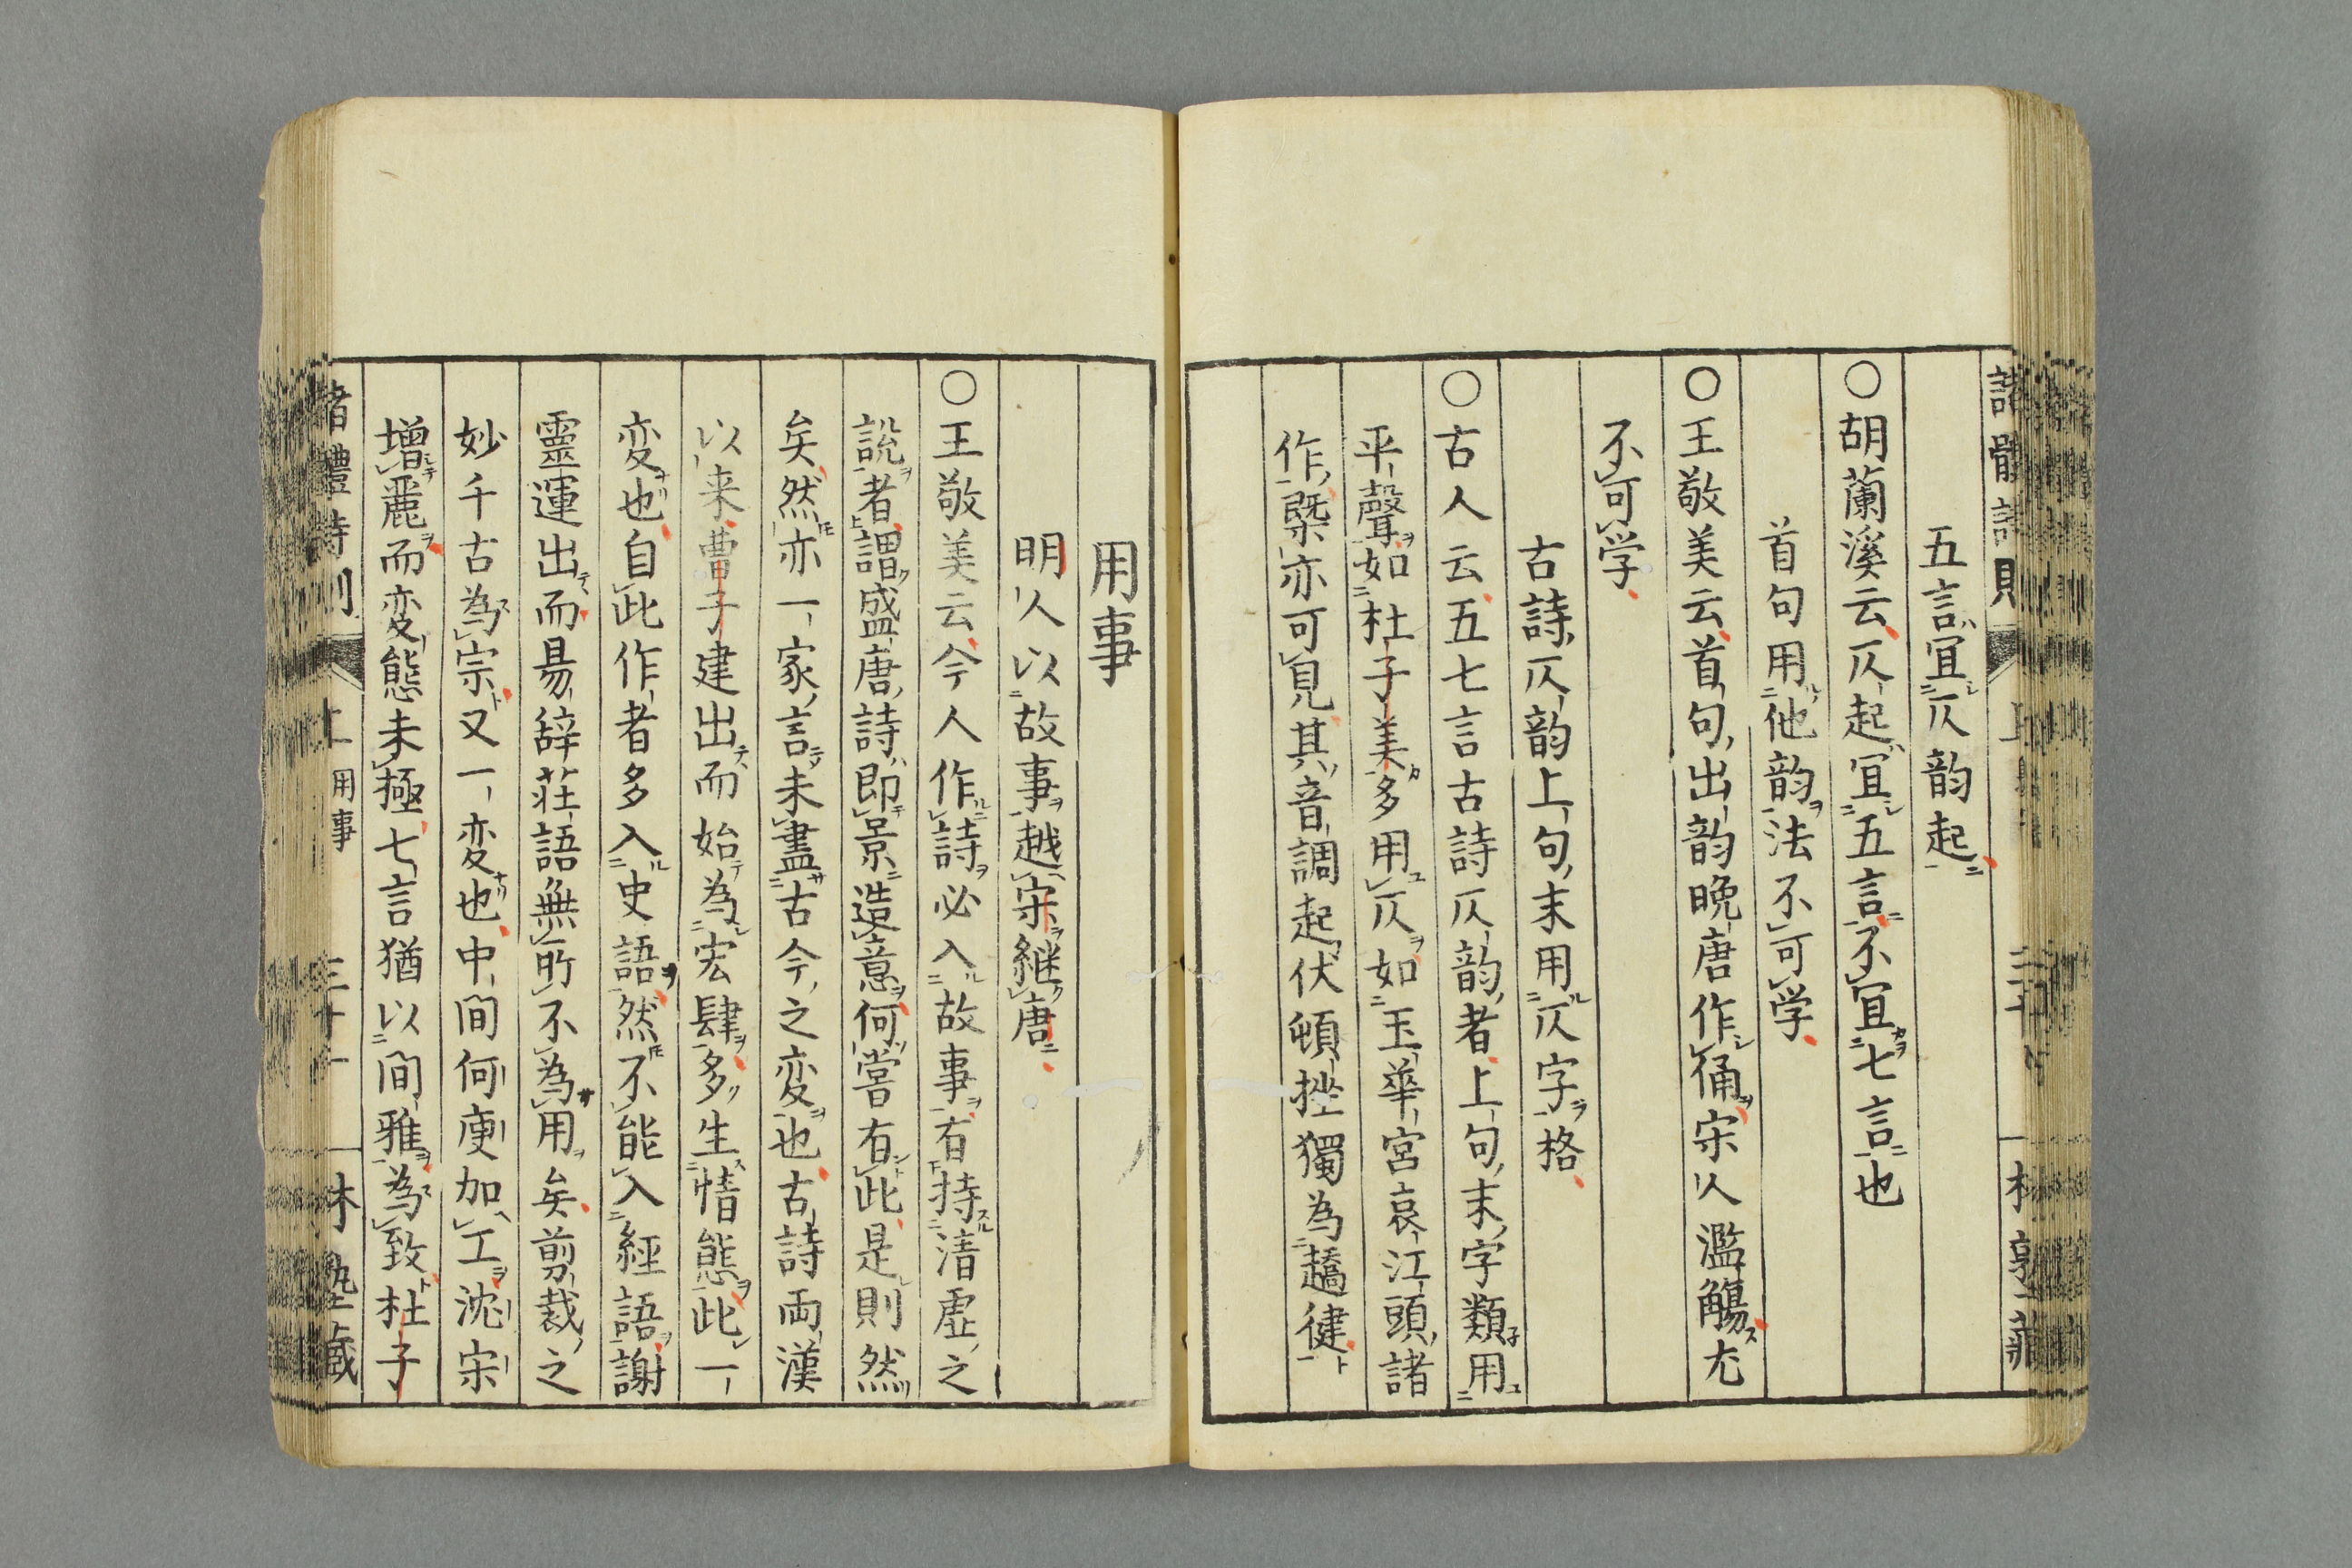 五言宜仄韵起
〇胡蘭溪云仄起宜五言不宜七言也
首句用他韵法不可学
〇王敬美云首句出韵晩唐作俑宋人濫觴尤
不可学
古詩仄韵上句末用仄字格
〇古人云五七言古詩仄韵者上句末字類用
平聲如杜子美多用仄如玉華宮哀江頭諸
作槩亦可見其音調起伏頓挫獨為趫健
用事
明人以故事越宋継唐
〇王敬美云今人作詩必入故事有持清虚之
説者謂盛唐詩即景造意何嘗有此是則然
矣然亦一家言未盡古今之変也古詩両漢
以来曹子建出而始為宏肆多生情態此一
変也自此作者多入史語然不能入經語謝
靈運出而易辭荘語無所不為用矣剪裁之
妙千古為宗又一変也中間何庾加工沈宋
増麗而変態未極七言猶以間雅為致杜子
諸體詩則 上 用事 三十一